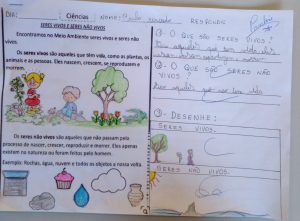 DIA: Ciências NOME:
SERES VIVOS E SERES NÃO VIVOS
Encontramos no Meio Ambiente seres vivos e seres não
vivos.
Os seres vivos são aqueles que têm vida, como as plantas, os
animais e as pessoas. Eles nascem, crescem, se reproduzem e
morrem.
Os seres não vivos são aqueles que não passam pelo
processo de nascer, crescer, reproduzir e morrer. Eles apenas
existem na natureza ou foram feitos pelo homem.
Exemplo: Rochas, água, nuvem e todos os objetos a nossa volta.
RESPONDA
1- O QUE SÃO SERES VIVOS?
2- O QUE SÃO SERES NÃO
VIVOS?
3- DESENHE:
SERES VIVOS.
SERES NÃO VIVOS.